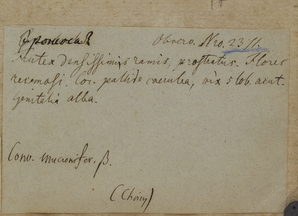 Ipomoea
Observ. Nro. 2311.
Frutex densissimis ramis, prostratus. Flores
racemosi. Cor. pallide caerulea, vix 5 lob. acut.
genitalia alba.
Conv. mucronifer. β.
(Choisy)